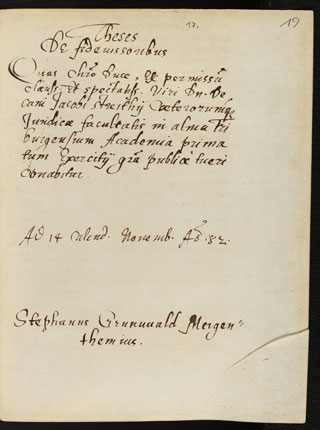 17.
19
Theses
De fideiussoribus
Quas Chro Duce, Et permissu
Clariss. et spectatiss. Viri Dn. De
cani Jacobi Streithij Caeterorumq
Juridicae facultatis in alma Fri
burgensium Academia prima
tum Exercitij gra publice tueri
conabitur
Ad 14 Calend. Novemb. Ao. 82.
Stephanus Grunuvald Mergen=
themius.